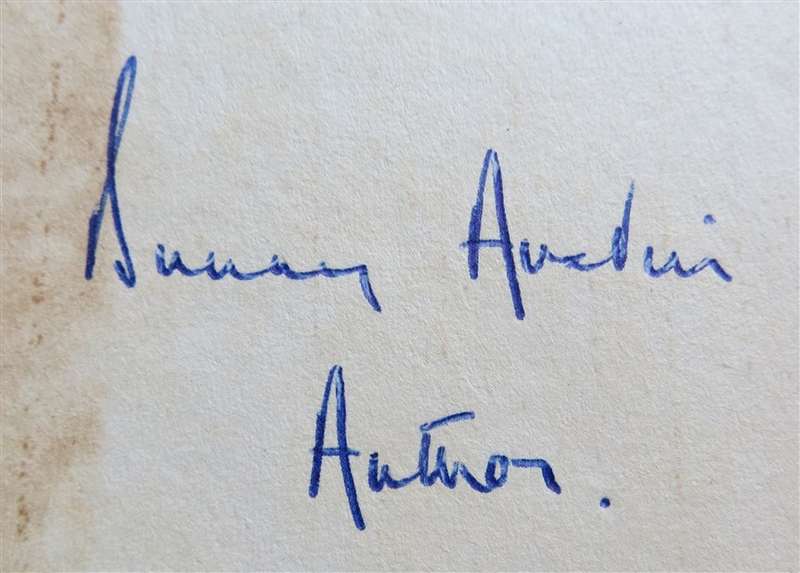 Bunny Austin
Author.